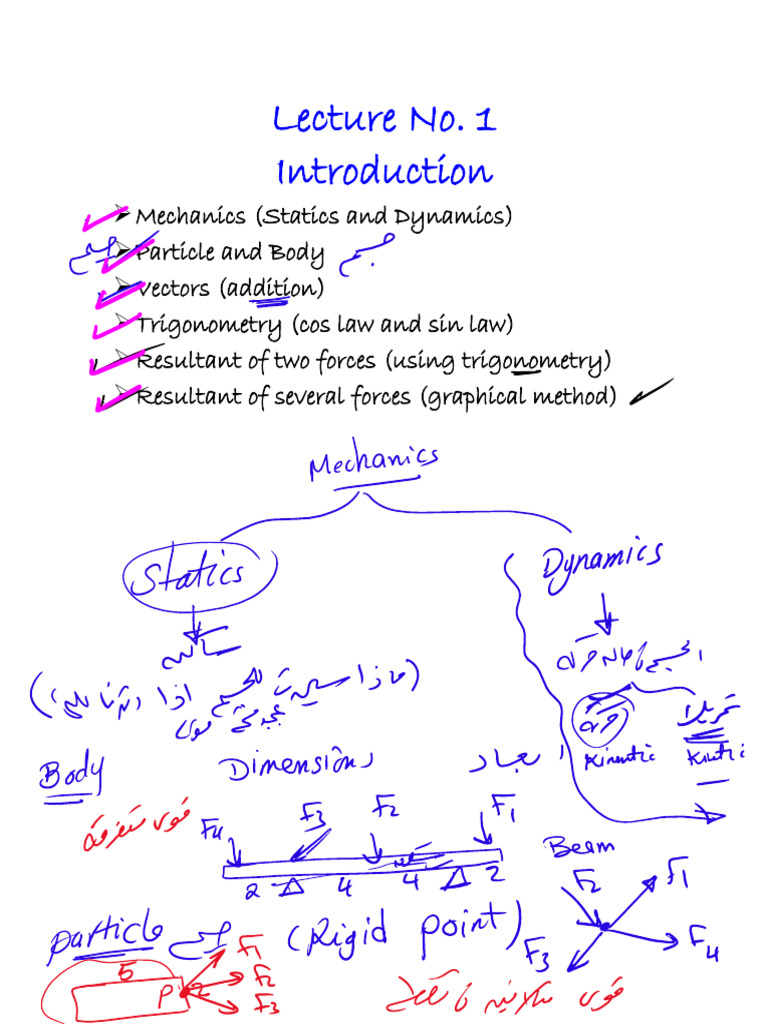 Lecture No. 1
Introduction
Mechanics (Statics and Dynamics)
جسيم Particle and Body جسم
Vectors (addition)
Trigonometry (cos law and sin law)
Resultant of two forces (using trigonometry)
Resultant of several forces (graphical method)
Mechanics
Statics Dynamics
ساكن
الجسم في حالة حركة
(ماذا سيحدث للجسم اذا
قوى
حركة
Kinematic Kinetic
Body Dimensions ابعاد
قوى متفرقة
F4 F3 F2 F1
Beam
2 4 4 2
F2 F1
Particle جسيم (Rigid point)
F3 F4
5 P F1
F2
F3
قوى متلاقية